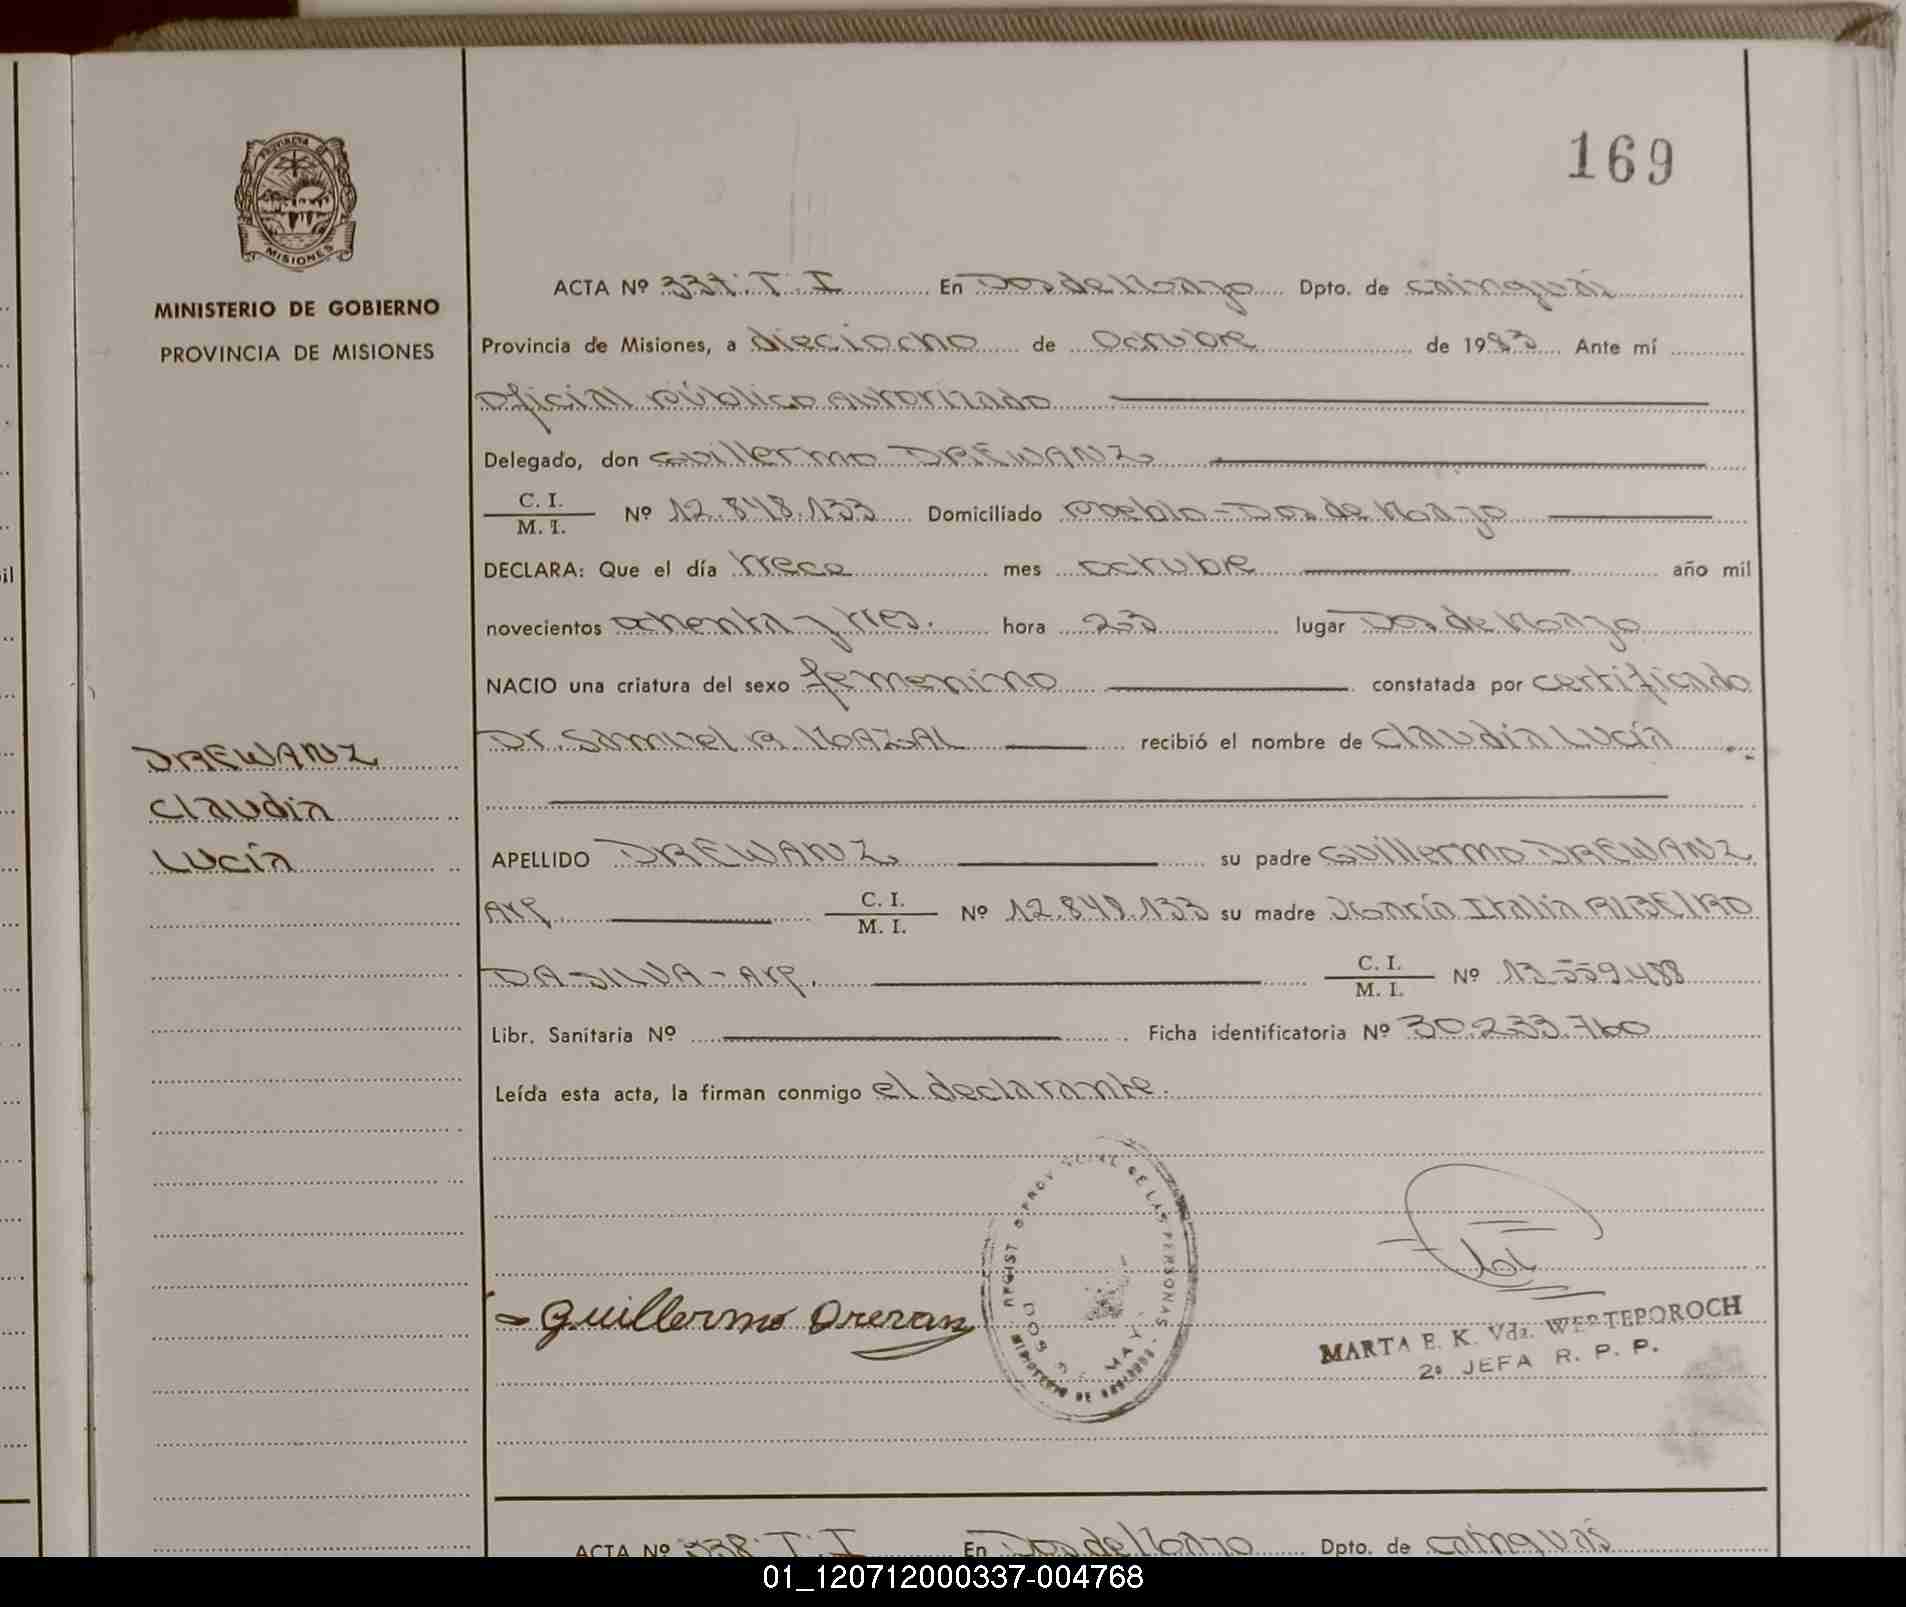 169
PROVINCIA DE
MISIONES
MINISTERIO DE GOBIERNO
PROVINCIA DE MISIONES
ACTA Nº 337. T. I En Dos de Mayo Dpto. de Cainguás
Provincia de Misiones, a dieciocho de Octubre de 1983 Ante mí
Oficial público autorizado
Delegado, don Guillermo DREWANZ
C. I.
M. I. Nº 12.848.133 Domiciliado Pueblo-Dos de Mayo
DECLARA: Que el día trece mes octubre año mil
novecientos ochenta y tres. hora 23 lugar Dos de Mayo
NACIO una criatura del sexo femenino constatada por certificado
Dr. Samuel A. MAZAL recibió el nombre de Claudia Lucía
DREWANZ
Claudia
Lucía
APELLIDO DREWANZ su padre Guillermo DREWANZ
Arg C. I.
M. I. Nº 12.848.133 su madre María Italia RIBEIRO
DA SILVA - Arg. C. I.
M. I. Nº 13.559.488
Libr. Sanitaria Nº Ficha identificatoria Nº 30.233.760
Leída esta acta, la firman conmigo el declarante.
Guillermo
DE LAS PERSONAS
MARTA E. K. Vda. WERTEPOROCH
2º JEFA R. P. P.
ACTA Nº 338. T. I En Dos de Mayo Dpto. de Cainguás
01_120712000337-004768